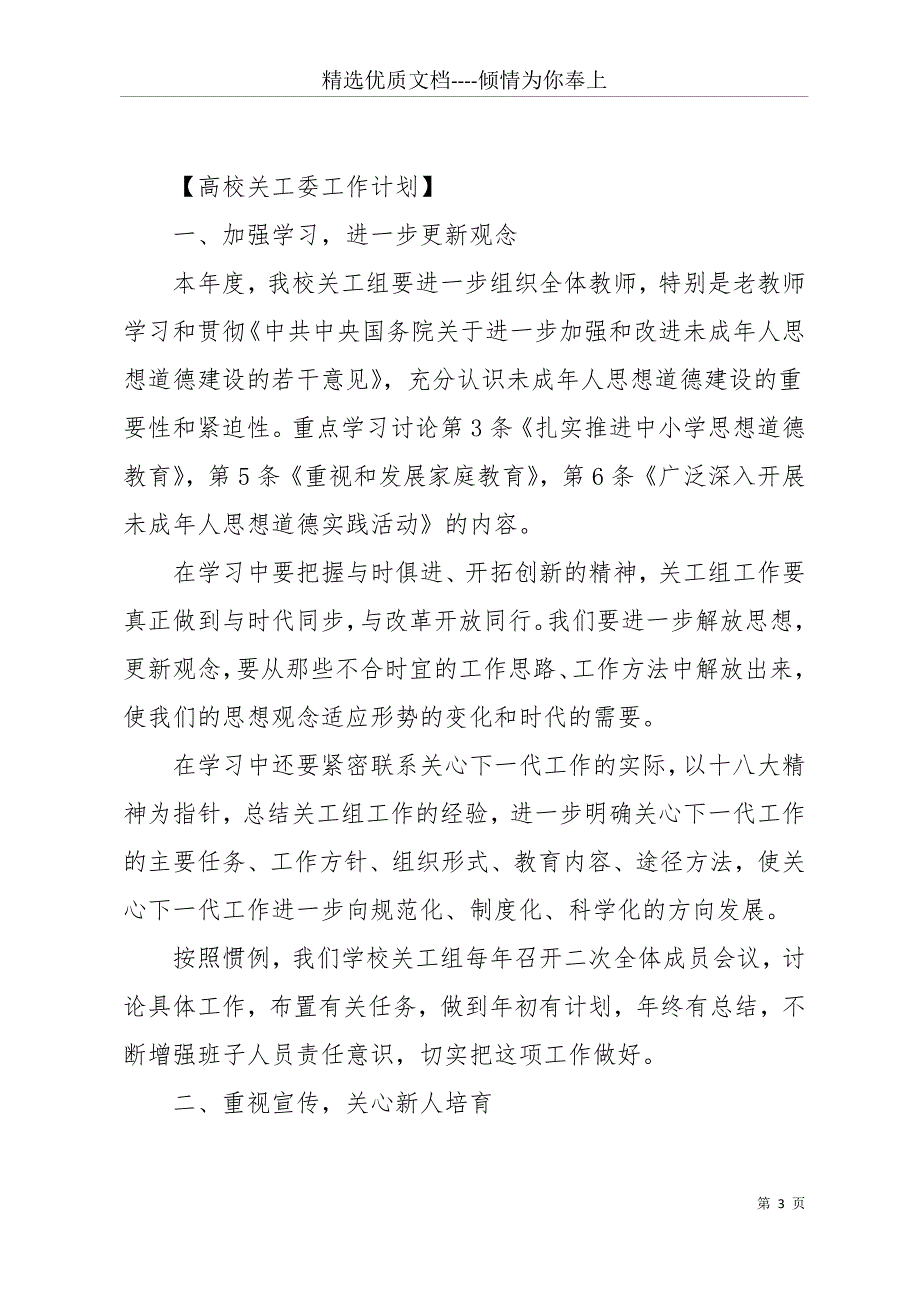 精选优质文档----倾情为你奉上
【高校关工委工作计划】
一、加强学习，进一步更新观念
本年度，我校关工组要进一步组织全体教师，特别是老教师
学习和贯彻《中共中央国务院关于进一步加强和改进未成年人思
想道德建设的若干意见》，充分认识未成年人思想道德建设的重
要性和紧迫性。重点学习讨论第 3 条《扎实推进中小学思想道德
教育》，第 5 条《重视和发展家庭教育》，第 6 条《广泛深入开展
未成年人思想道德实践活动》的内容。
在学习中要把握与时俱进、开拓创新的精神，关工组工作要
真正做到与时代同步，与改革开放同行。我们要进一步解放思想，
更新观念，要从那些不合时宜的工作思路、工作方法中解放出来，
使我们的思想观念适应形势的变化和时代的需要。
在学习中还要紧密联系关心下一代工作的实际，以十八大精
神为指针，总结关工组工作的经验，进一步明确关心下一代工作
的主要任务、工作方针、组织形式、教育内容、途径方法，使关
心下一代工作进一步向规范化、制度化、科学化的方向发展。
按照惯例，我们学校关工组每年召开二次全体成员会议，讨
论具体工作，布置有关任务，做到年初有计划，年终有总结，不
断增强班子人员责任意识，切实把这项工作做好。
二、重视宣传，关心新人培育
第 3 页